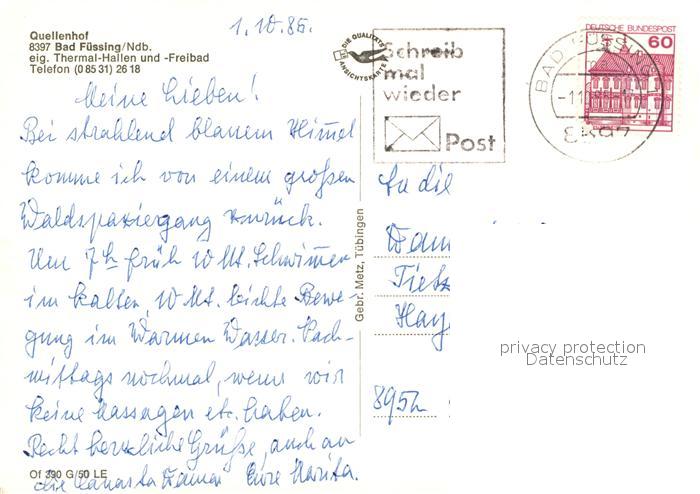 1.10.86.
Quellenhof
8397 Bad Füssing/Ndb.
eig. Thermal-Hallen und -Freibad
Telefon (0 85 31) 26 18
DIE QUALITÄTS
ANSICHTSKARTE
Schreib
mal
wieder
Post
BAD FÜSSING
8397
DEUTSCHE BUNDESPOST
60
Meine Lieben!
Bei strahlend blauem Himmel
komme ich von einem großen
Waldspaziergang zurück.
Um 7h früh 10 Mt. Schwimmen
im kalten, 10 Mt. leichte Bewe-
gung im Warmen Wasser. Nach-
mittags nochmal, wenn wir
keine Massagen etc. haben.
Recht herzliche Grüße, auch an
die Canasta Damen Eure Marita.
Of 390 G/50 LE
Gebr. Metz, Tübingen
An die
Fam
Tietz
Hay
895
privacy protection
Datenschutz